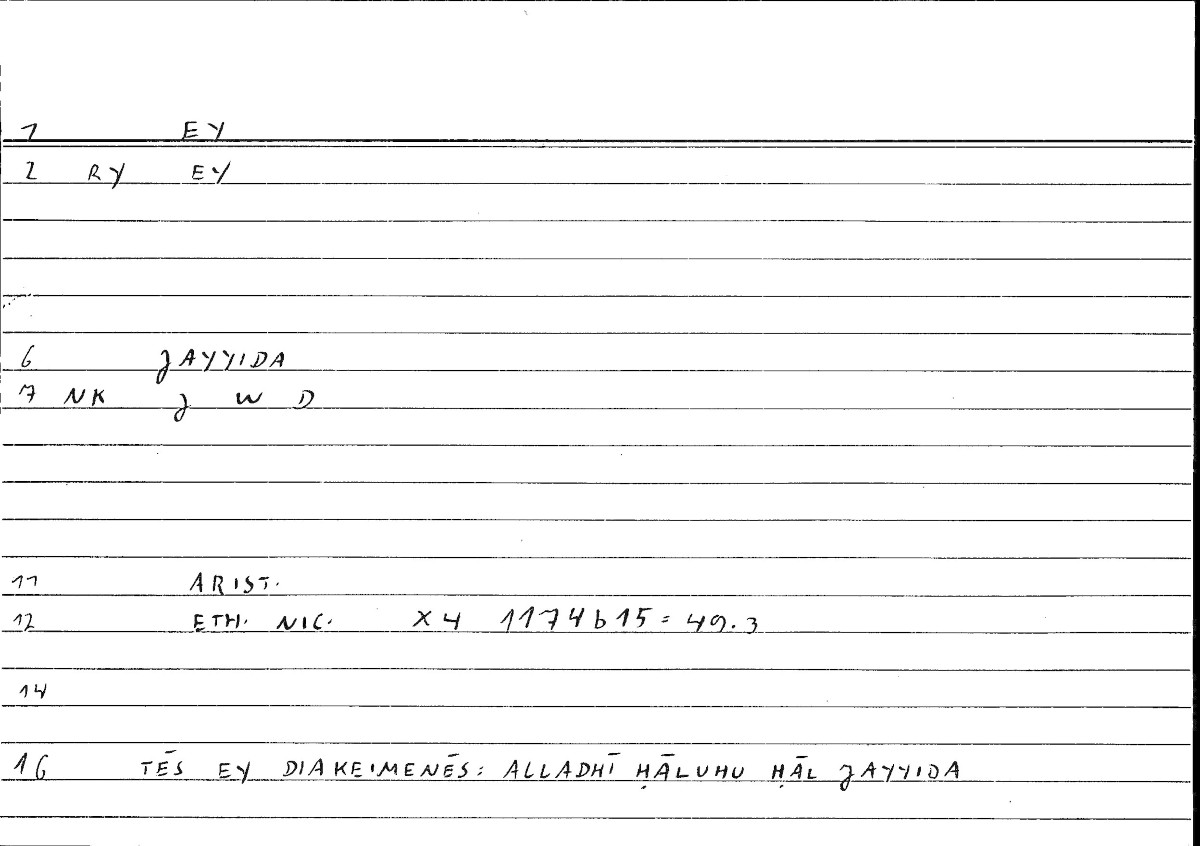 1 EY
2 RY EY
6 JAYYIDA
7 NK J W D
11 ARIST.
12 ETH. NIC. X4 1174b15 = 49.3
14
16 TĒS EY DIAKEIMENĒS: ALLADHĪ ḤĀLUHU ḤĀL JAYYIDA